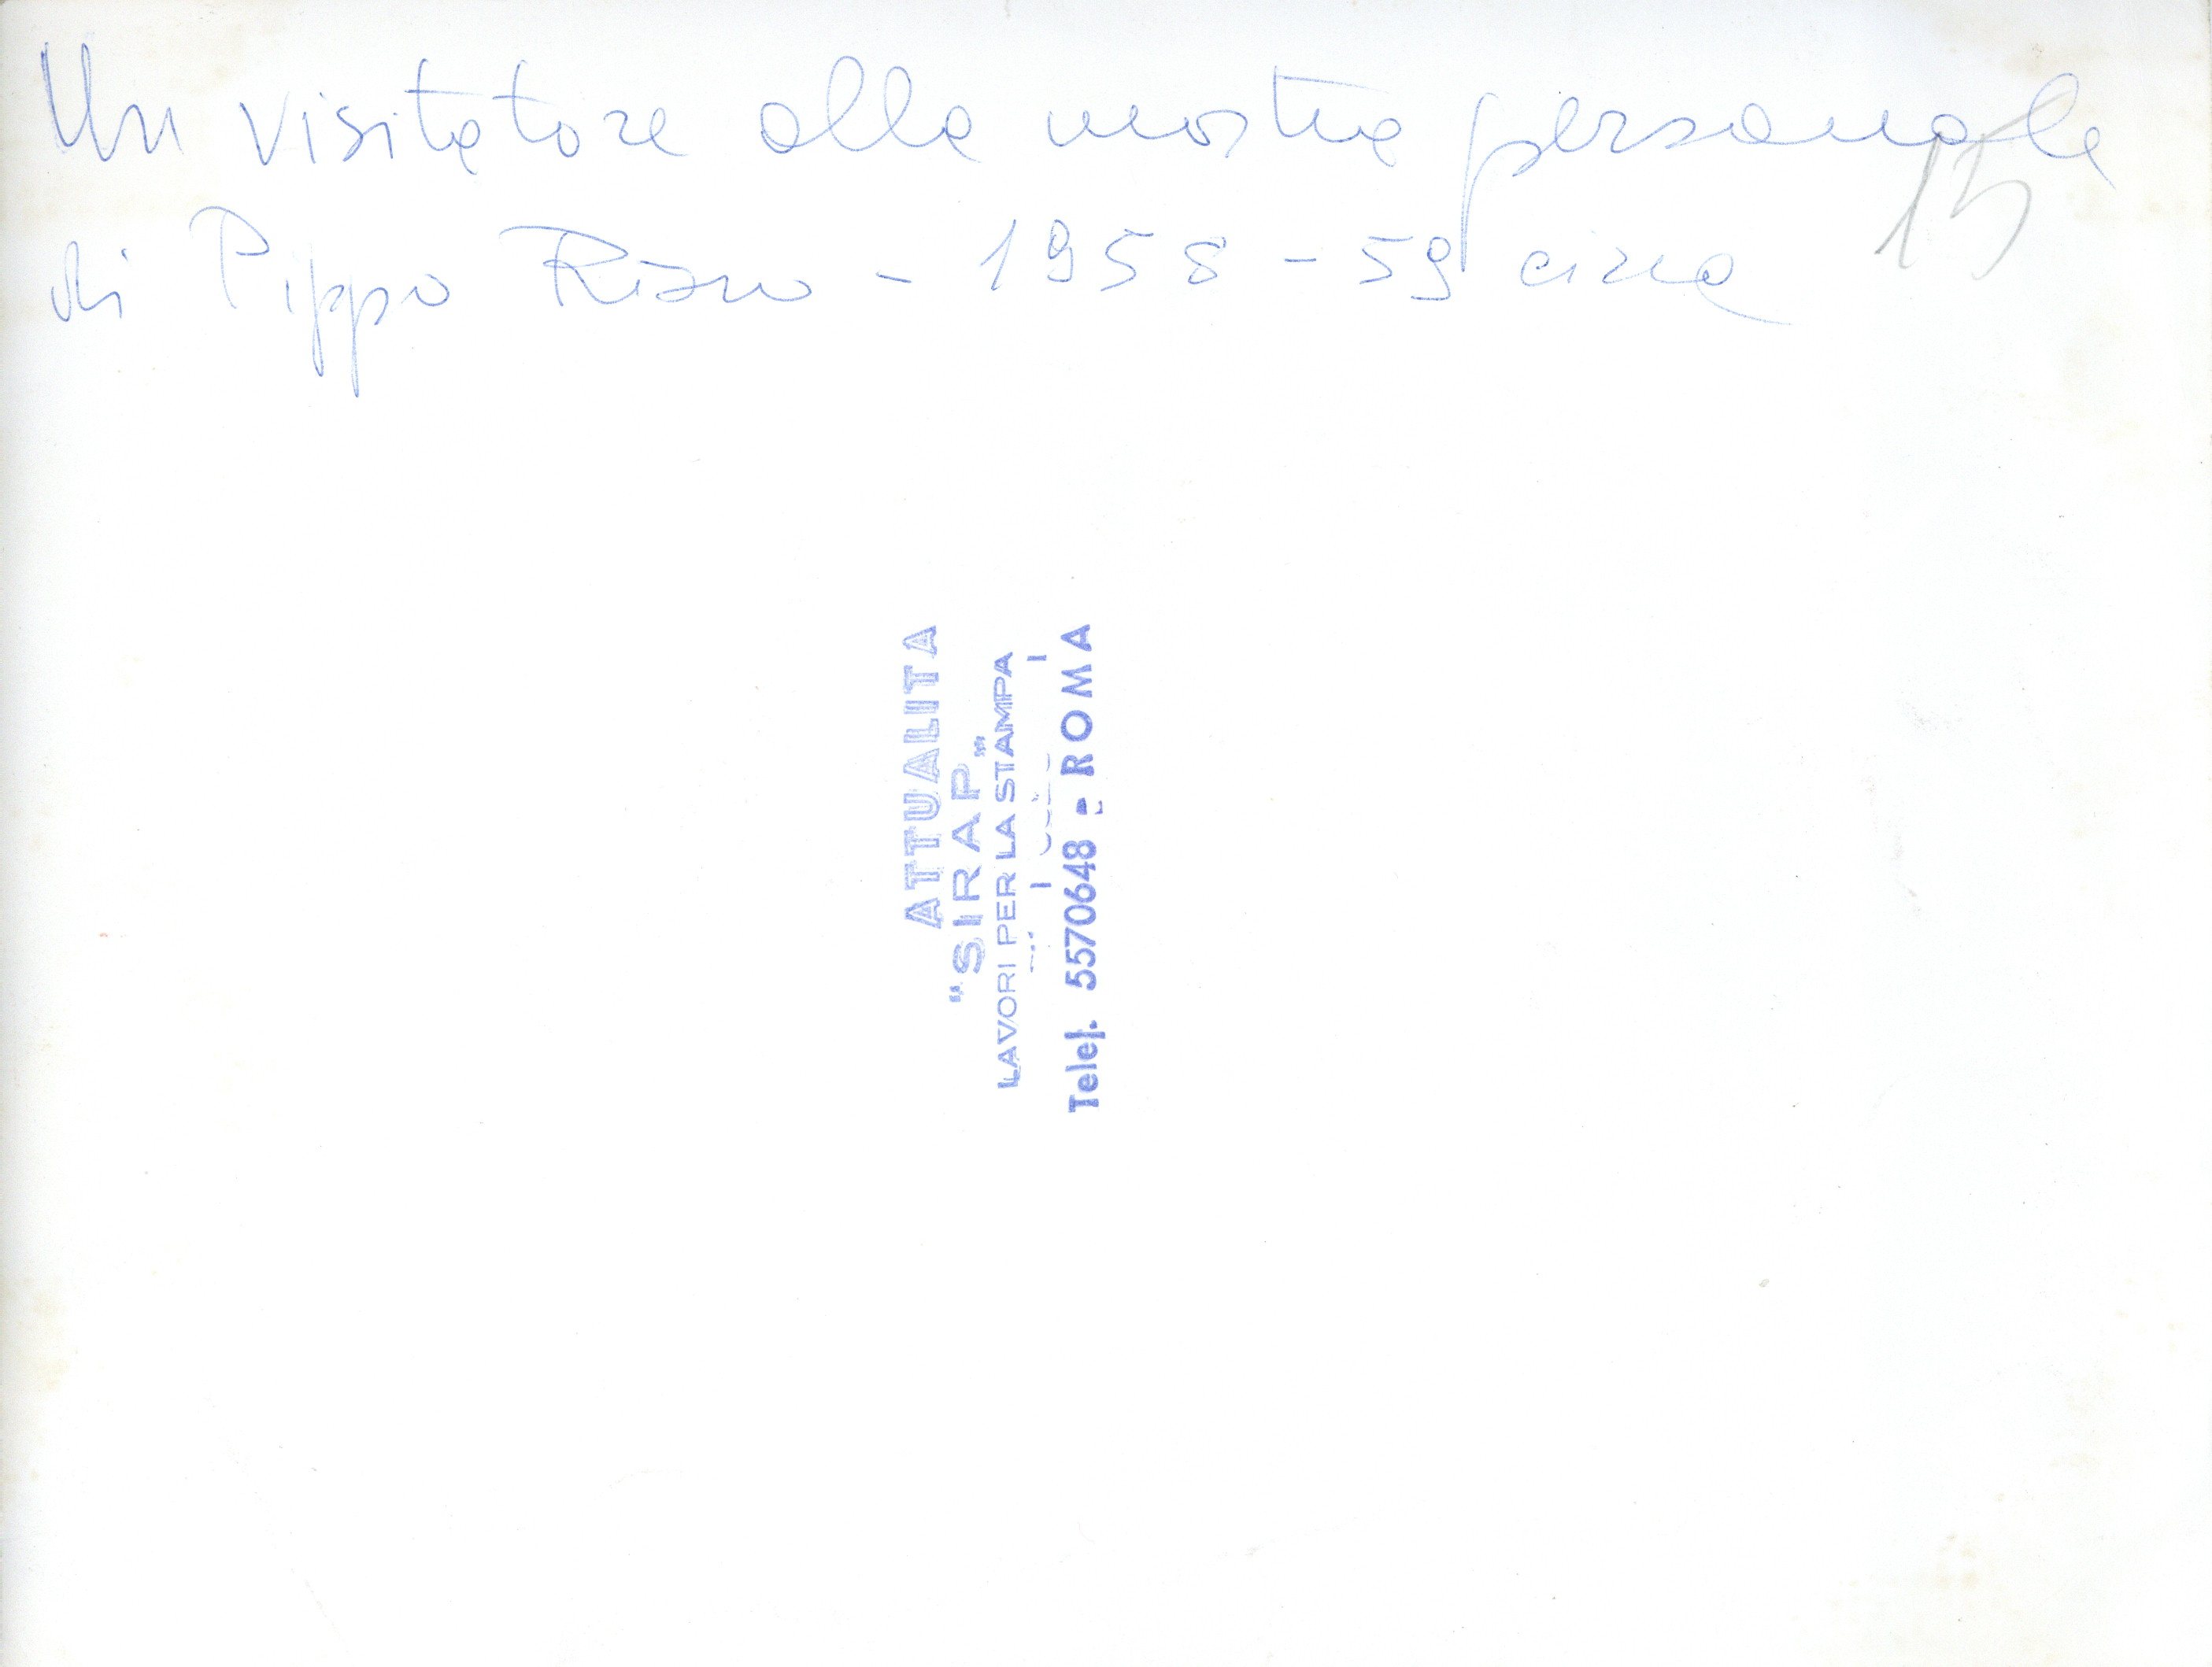 Un visitatore alla mostra personale
di Pippo Rizzo - 1958 - 59 circa
15
ATTUALITA
"SIRAP"
LAVORI PER LA STAMPA
Telef. 5570648 - ROMA